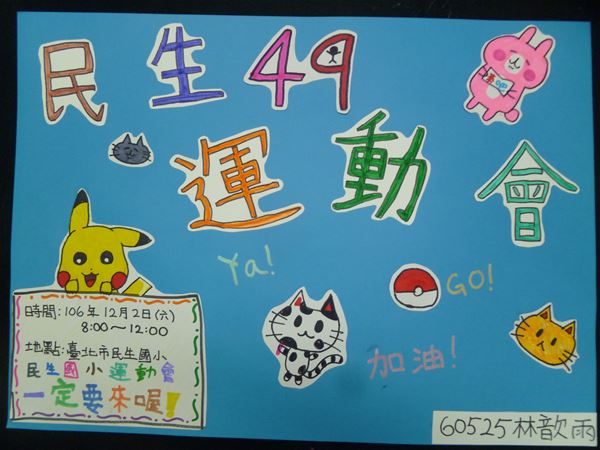 民生49
運動會
Ya!
GO!
加油!
時間:106年12月2日(六)
8:00~12:00
地點:臺北市民生國小
民生國小運動會
一定要來喔!
60525林歆雨